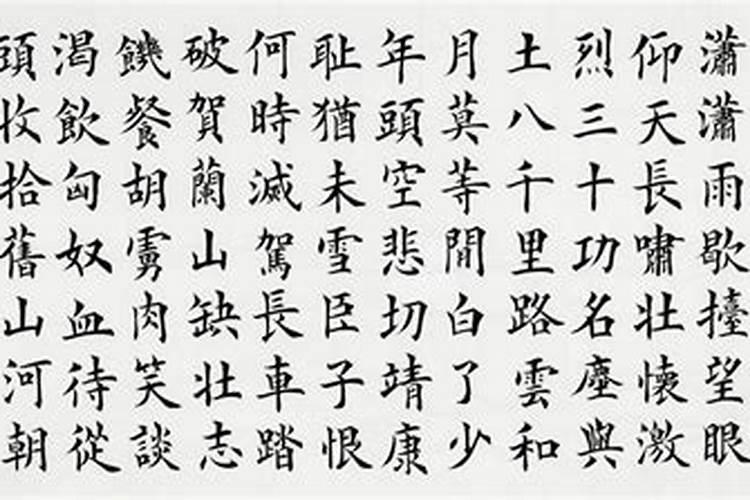 瀟瀟雨歇擡望眼
仰天長嘯壯懷激
烈三十功名塵與
土八千里路雲和
月莫等閒白了少
年頭空悲切靖康
耻猶未雪臣子恨
何時滅駕長車踏
破賀蘭山缺壯志
饑餐胡虜肉笑談
渴飲匈奴血待從
頭收拾舊山河朝